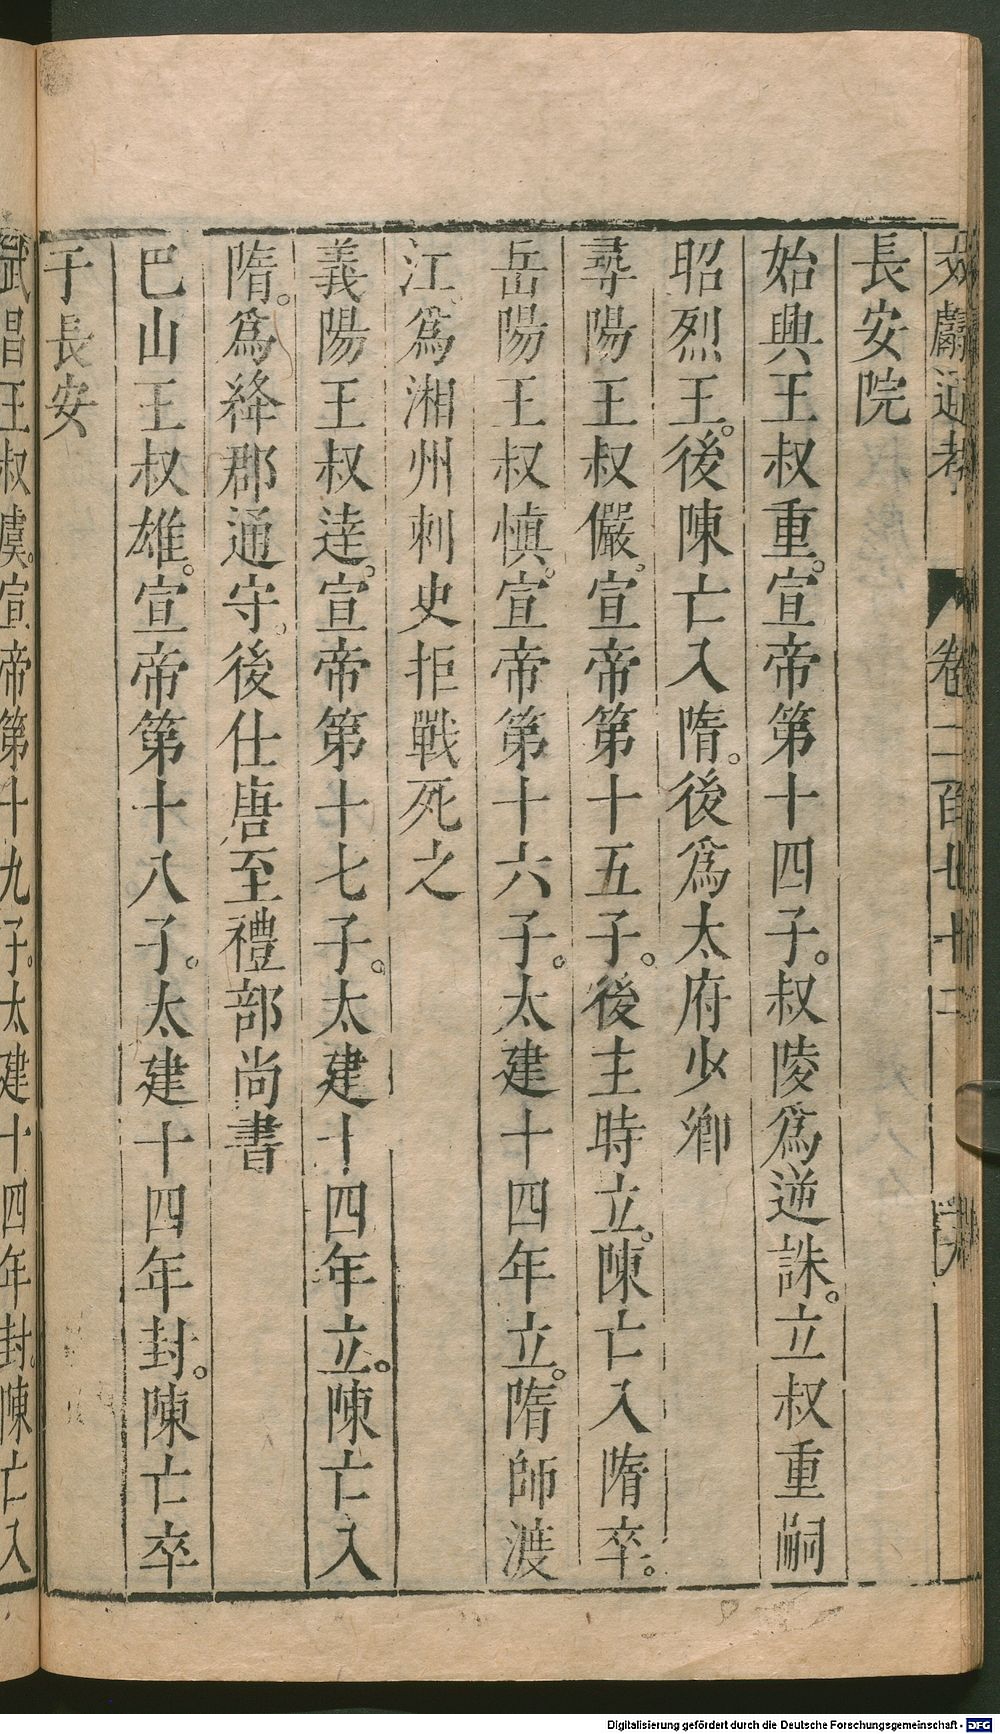 文獻通考 卷二百七十二
長安院
始興王叔重。宣帝第十四子。叔陵爲逆誅。立叔重嗣
昭烈王。後陳亡入隋。後爲太府少卿
尋陽王叔儼。宣帝第十五子。後主時立。陳亡入隋卒。
岳陽王叔慎。宣帝第十六子。太建十四年立。隋師渡
江爲湘州刺史拒戰死之
義陽王叔達。宣帝第十七子。太建十四年立。陳亡入
隋。爲絳郡通守。後仕唐至禮部尚書
巴山王叔雄。宣帝第十八子。太建十四年封。陳亡卒
于長安
武昌王叔虞。宣帝第十九子。太建十四年封。陳亡入
Digitalisierung gefördert durch die Deutsche Forschungsgemeinschaft - DFG